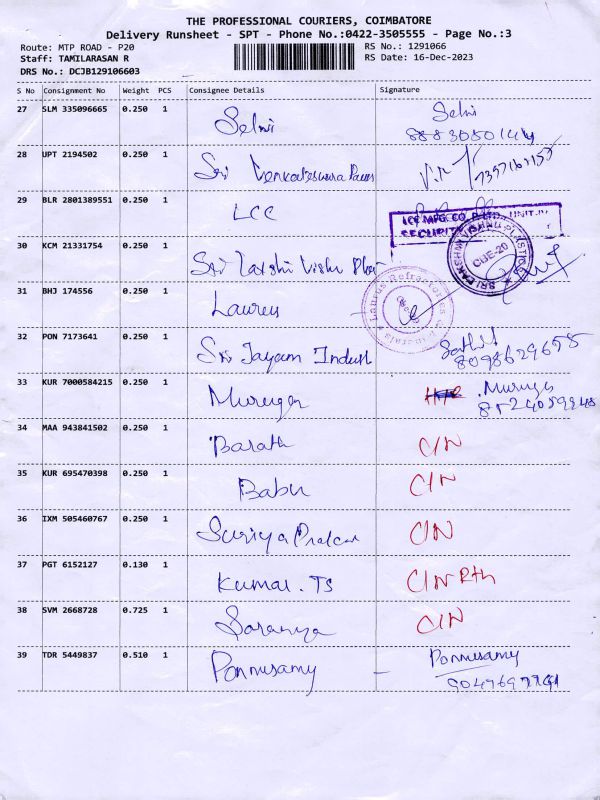 THE PROFESSIONAL COURIERS, COIMBATORE
Delivery Runsheet - SPT - Phone No.:0422-3505555 - Page No.:3
Route: MTP ROAD - P20
RS No.: 1291066
Staff: TAMILARASAN R
RS Date: 16-Dec-2023
DRS No.: DCJB129106603
S No Consignment No Weight PCS Consignee Details Signature
27 SLM 335096665 0.250 1 Selvi Selvi
28 UPT 2194502 0.250 1 Sri Venkateswara
29 BLR 2801389551 0.250 1 LCC
LCC MFG. CO. P. LTD., UNIT.IV
SECURITY
30 KCM 21331754 0.250 1 Sri Laxshi Vishu
SRI LAKSHMI VISHNU PLASTICS
CBE-20
31 BHJ 174556 0.250 1 Laurus
Laurus Refractories & Minerals
32 PON 7173641 0.250 1 Sri Jayam Indust
8098629658
33 KUR 7000584215 0.250 1 Murugan Muruga
34 MAA 943841502 0.250 1 Barath C/N
35 KUR 695470398 0.250 1 Babu C/N
36 IXM 505460767 0.250 1 Suriya C/N
37 PGT 6152127 0.130 1 Kumar. TS C/N Rth
38 SVM 2668728 0.725 1 Saranya C/N
39 TDR 5449837 0.510 1 Ponnusamy - Ponnusamy